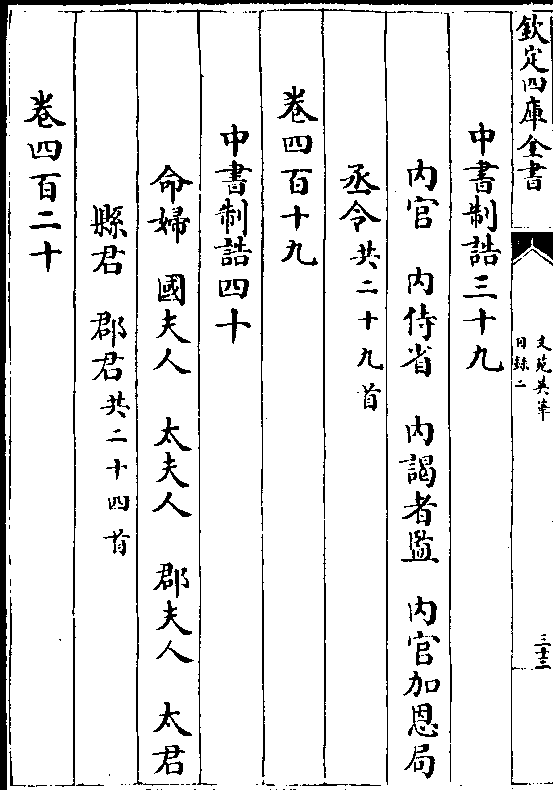 欽定四庫全書
文苑英華
目録二
三十三
中書制誥三十九
内官　内侍省　内謁者監　内官加恩局
丞令共二十九首
卷四百十九
中書制誥四十
命婦　國夫人　太夫人　郡夫人　太君
縣君　郡君共二十四首
卷四百二十